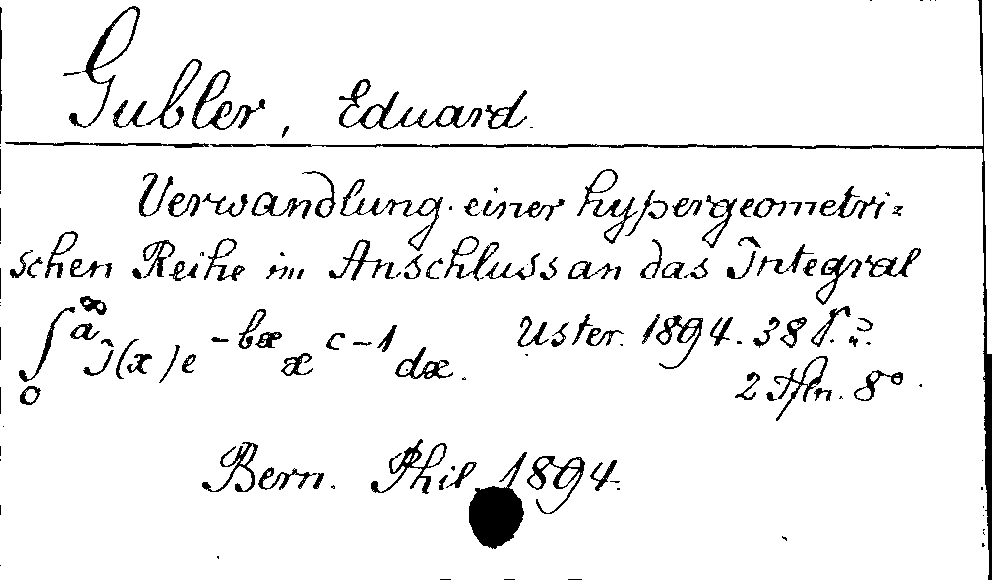 Gubler, Eduard.
Verwandlung einer hypergeometri=
schen Reihe im Anschluss an das Integral
∫₀^∞ ᵃJ(x)e^{-bx} x^{c-1} dx. Uster. 1894. 38 S. u.
2 Tfln. 8°.
Bern. Phil. 1894.